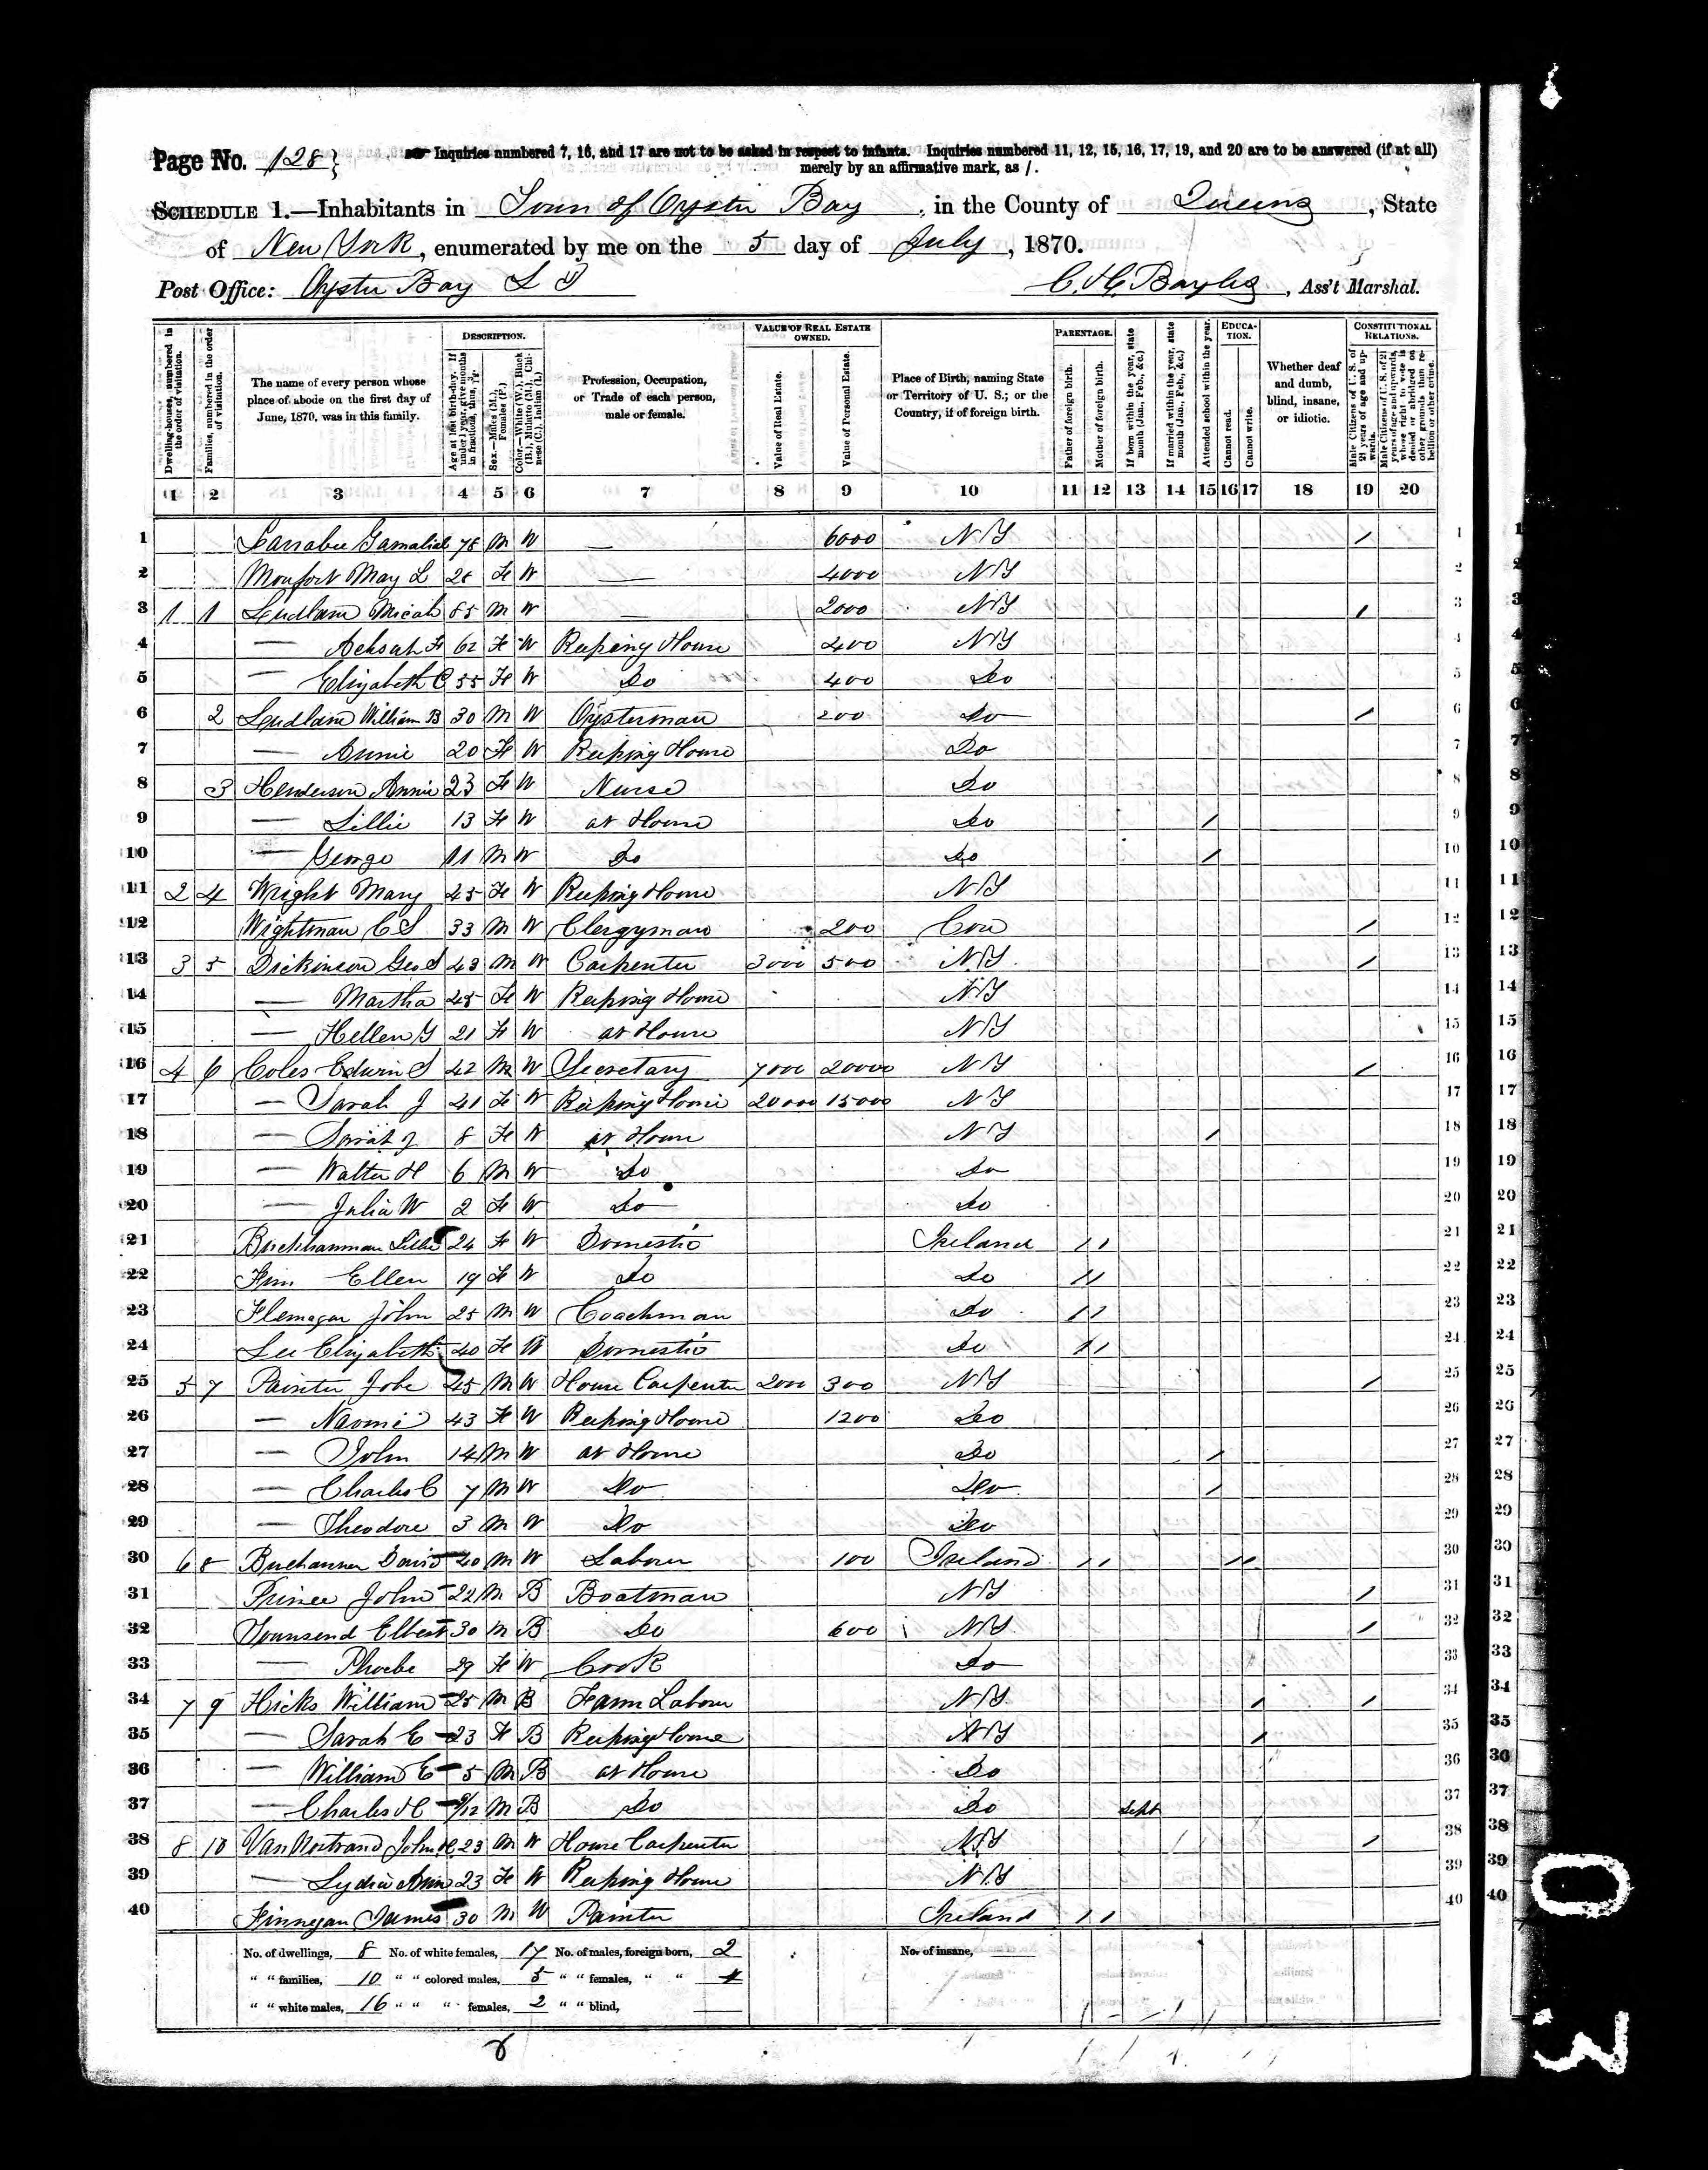 Page No. 128
Inquiries numbered 7, 16, and 17 are not to be asked in respect to infants. Inquiries numbered 11, 12, 15, 16, 17, 19, and 20 are to be answered (if at all)
merely by an affirmative mark, as /.
SCHEDULE 1.—Inhabitants in Town of Oyster Bay, in the County of Queens, State
of New York, enumerated by me on the 5 day of July, 1870.
Post Office: Oyster Bay L I C. H. Bayles, Ass't Marshal.
Dwelling-houses, numbered in the order of visitation.
Families, numbered in the order of visitation.
The name of every person whose place of abode on the first day of June, 1870, was in this family.
DESCRIPTION.
Age at last birth-day. If under 1 year, give months in fractions, thus, 3/12.
Sex.—Males (M.), Females (F.)
Color.—White (W.), Black (B.), Mulatto (M.), Chinese (C.), Indian (I.)
Profession, Occupation, or Trade of each person, male or female.
VALUE OF REAL ESTATE OWNED.
Value of Real Estate.
Value of Personal Estate.
Place of Birth, naming State or Territory of U. S.; or the Country, if of foreign birth.
PARENTAGE.
Father of foreign birth.
Mother of foreign birth.
If born within the year, state month (Jan., Feb., &c.)
If married within the year, state month (Jan., Feb., &c.)
Attended school within the year.
EDUCATION.
Cannot read.
Cannot write.
Whether deaf and dumb, blind, insane, or idiotic.
CONSTITUTIONAL RELATIONS.
Male Citizens of U. S. of 21 years of age and upwards.
Male Citizens of U. S. of 21 years of age and upwards, whose right to vote is denied or abridged on other grounds than rebellion or other crime.
1 2 3 4 5 6 7 8 9 10 11 12 13 14 15 16 17 18 19 20
1 Larrabee Gamaliel 78 M W — 6000 N Y / 1 1
2 Monfort May L 28 F W — 4000 N Y 2 2
3 1 1 Ludlam Micah 85 M W — 2000 N Y / 3 3
4 — Achsah 62 F W Keeping House 400 N Y 4 4
5 — Elizabeth C 55 F W Do 400 Do 5 5
6 2 Ludlam William B 30 M W Oysterman 200 Do / 6 6
7 — Annie 20 F W Keeping House Do 7 7
8 3 Henderson Annie 23 F W Nurse Do 8 8
9 — Lillie 13 F W at Home Do / 9 9
10 — George 11 M W Do Do / 10 10
11 2 4 Wright Mary 45 F W Keeping House N Y 11 11
12 Wightman C S 33 M W Clergyman 200 Con / 12 12
13 3 5 Dickinson Geo S 43 M W Carpenter 3000 500 N Y / 13 13
14 — Martha 45 F W Keeping House N Y 14 14
15 — Hellen G 21 F W at House N Y 15 15
16 4 6 Coles Edwin S 42 M W Secretary 7000 20000 N Y / 16 16
17 — Sarah J 41 F W Keeping House 20000 15000 N Y 17 17
18 — Sarah J 8 F W at Home N Y / 18 18
19 — Walter H 6 M W Do Do 19 19
20 — Julia W 2 F W Do Do 20 20
21 Buckhannan Lillie 24 F W Domestic Ireland / / 21 21
22 Finn Ellen 19 F W Do Do / / 22 22
23 Flemagan John 25 M W Coachman Do / / 23 23
24 Lee Elizabeth 40 F W Domestic Do / / 24 24
25 5 7 Painter Jobe 45 M W House Carpenter 2000 300 N Y / 25 25
26 — Naomi 43 F W Keeping House 1200 Do 26 26
27 — John 14 M W at Home Do / 27 27
28 — Charles C 7 M W Do Do / 28 28
29 — Theodore 3 M W Do Do 29 29
30 6 8 Buchanner David 40 M W Laborer 100 Ireland / / / / 30 30
31 Prince John 22 M B Boatman N Y / 31 31
32 Townsend Elbert 30 M B Do 600 N Y / 32 32
33 — Phoebe 29 F W Cook Do 33 33
34 7 9 Hicks William 25 M B Farm Labour N Y / / 34 34
35 — Sarah E 23 F B Keeping House N Y / 35 35
36 — William E 5 M B at House Do 36 36
37 — Charles H C 9/12 M B Do Do Sept 37 37
38 8 10 Van Nostrand John H 23 M W House Carpenter N Y / 38 38
39 — Lydia Ann 23 F W Keeping House N Y 39 39
40 Finnegan James 30 M W Painter Ireland / / 40 40
No. of dwellings, 8 No. of white females, 17 No. of males, foreign born, 2 No. of insane,
" " families, 10 " " colored males, 5 " " females, " "
" " white males, 16 " " " females, 2 " " blind,
8
30